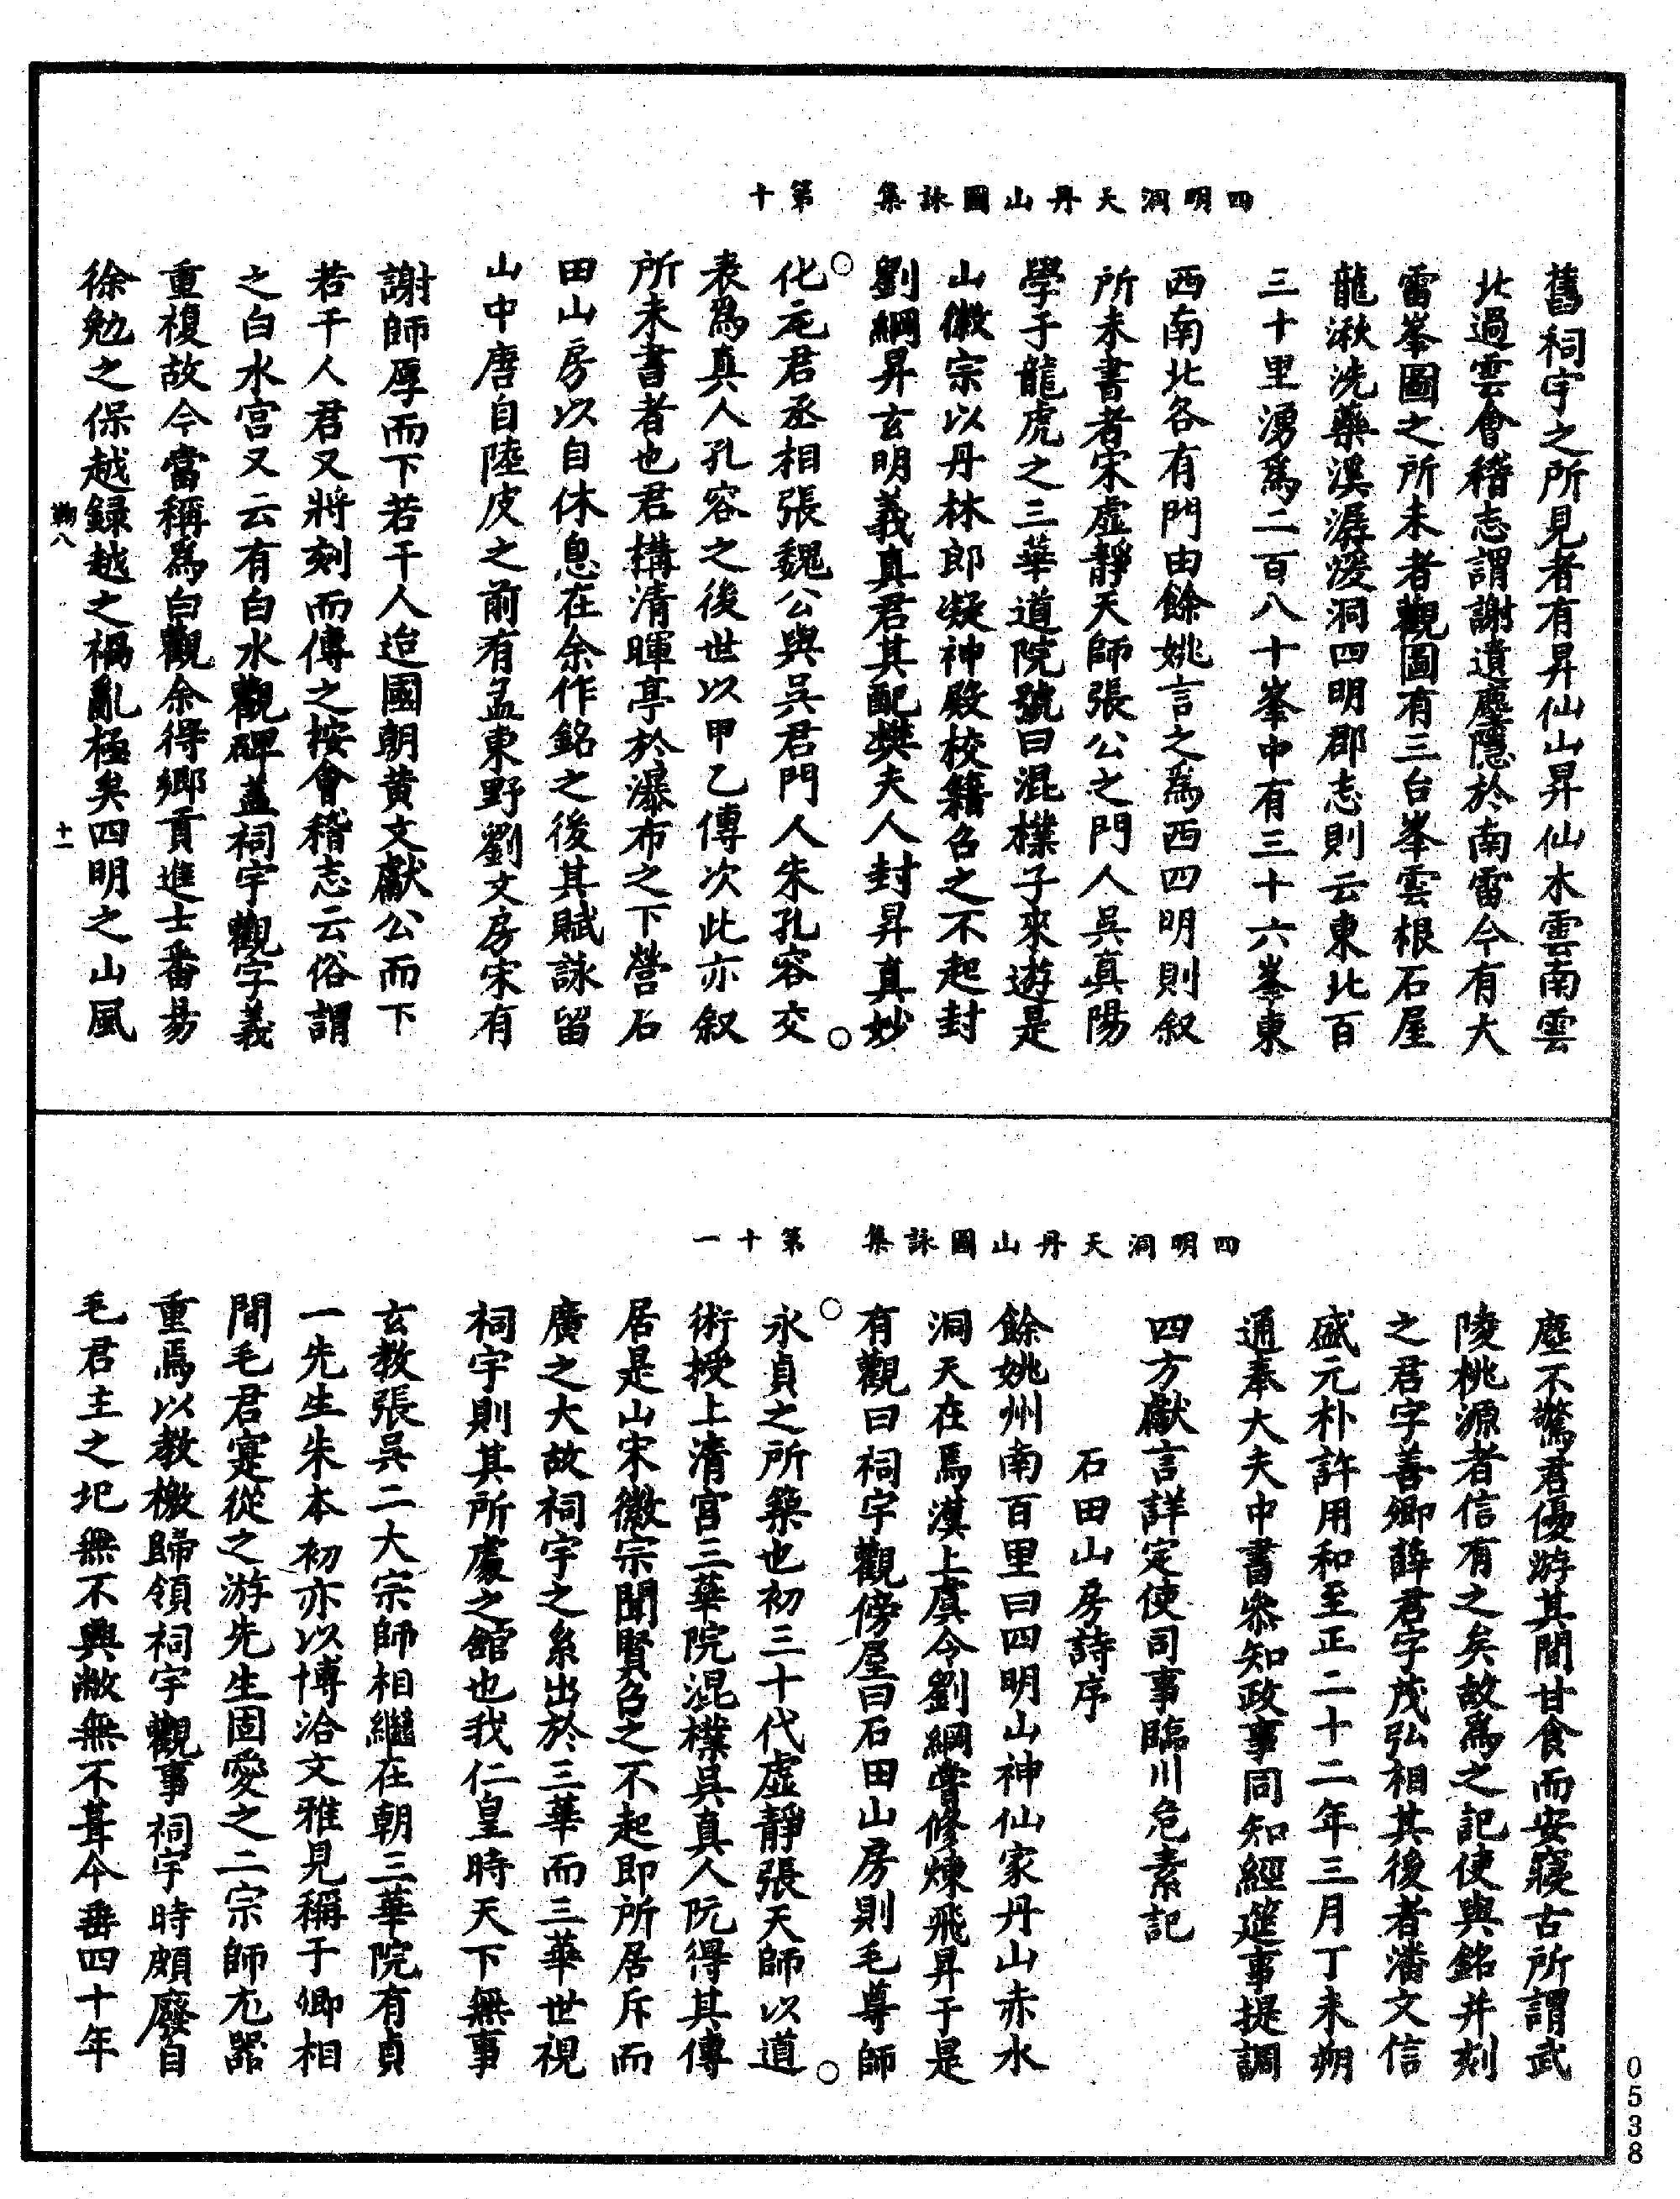 四明洞天丹山圖詠集　第十
舊祠宇之所見者有昇仙山昇仙木雲南雲
北過雲會稽志謂謝遺塵隱於南雷今有大
雷峯圖之所未者觀圖有三台峯雲根石屋
龍湫洗藥溪潺湲洞四明郡志則云東北百
三十里湧為二百八十峯中有三十六峯東
西南北各有門由餘姚言之為西四明則叙
所未書者宋虛靜天師張公之門人吳真陽
學于龍虎之三華道院號曰混樸子來遊是
山徽宗以丹林郎凝神殿校籍召之不起封
劉綱昇玄明義真君其配樊夫人封昇真妙
化元君丞相張魏公與吳君門人朱孔容交
表為真人孔容之後世以甲乙傳次此亦叙
所未書者也君構清暉亭於瀑布之下營石
田山房以自休息在余作銘之後其賦詠留
山中唐自陸皮之前有孟東野劉文房宋有
謝師厚而下若干人迨國朝黃文獻公而下
若干人君又將刻而傳之按會稽志云俗謂
之白水宮又云有白水觀碑蓋祠宇觀字義
重複故今當稱為白觀余得鄉貢進士番昜
徐勉之保越録越之禍亂極矣四明之山風
鞠八　十一
四明洞天丹山圖詠集　第十一
塵不驚君優游其間甘食而安寢古所謂武
陵桃源者信有之矣故為之記使與銘并刻
之君字善卿薛君字茂弘相其後者潘文信
盛元朴許用和至正二十二年三月丁未朔
通奉大夫中書叅知政事同知經筵事提調
四方獻言詳定使司事臨川危素記
石田山房詩序
餘姚州南百里曰四明山神仙家丹山赤水
洞天在焉漢上虞令劉綱嘗修煉飛昇于是
有觀曰祠宇觀傍屋曰石田山房則毛尊師
永貞之所築也初三十代虛靜張天師以道
術授上清宮三華院混樸吳真人阮得其傳
居是山宋徽宗聞賢召之不起即所居斥而
廣之大故祠宇之系出於三華而三華世視
祠宇則其所處之館也我仁皇時天下無事
玄教張吳二大宗師相繼在朝三華院有貞
一先生朱本初亦以博洽文雅見稱于卿相
間毛君寔從之游先生固愛之二宗師尤器
重焉以教檄歸領祠宇觀事祠宇時頗廢自
毛君主之圯無不興敝無不葺今垂四十年
0538